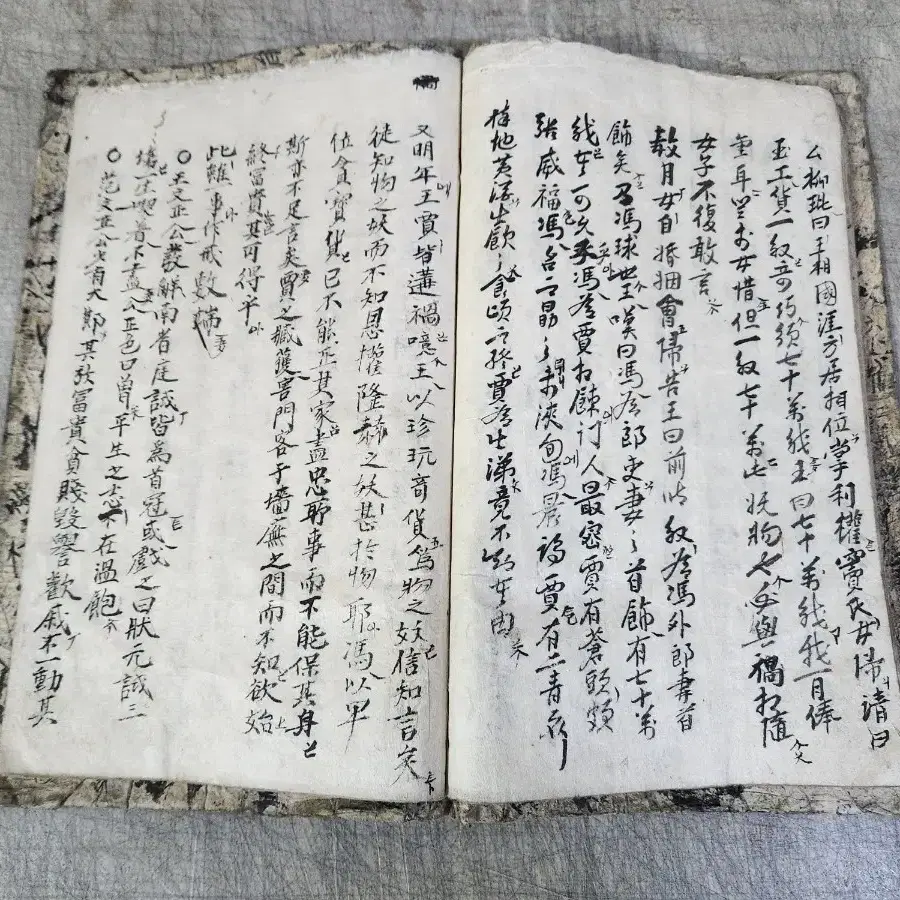 公柳玭曰王相國涯方居相位掌利權竇氏女歸請曰
玉工貨一釵奇巧須七十萬錢王曰七十萬錢我一月俸
金耳豈於女惜但一釵七十萬此妖物也必與禍相隨
女子不復敢言
數月女自婚姻會歸告王曰前時釵爲馮外郎妻首
飾矣乃馮球也王嘆曰馮爲郎吏妻之首飾有七十萬
錢其可久乎馮爲賈相餗門人最密賈有蒼頭頗
張威福馮召而勗之未浹旬馮晨謁賈有二青衣
捧地黃酒出飲之食頃而終賈爲出涕竟不知其由
又明年王賈皆遘禍噫王以珍玩奇貨爲物之妖信知言矣
徒知物之妖而不知恩權隆赫之妖甚於物耶馮以卑
位貪寶貨已不能正其家盡忠所事而不能保其身
斯亦不足言矣賈之臧獲害門客于墻廡之間而不知欲始
終富貴其可得乎
此雖一事作戒數端
○王文正公發解南省庭試皆爲首冠或戱之曰狀元試三
場一生喫着不盡公正色曰曾平生之志不在溫飽
○范文正公少有大節其於富貴貧賤毁譽歡戚不一動其